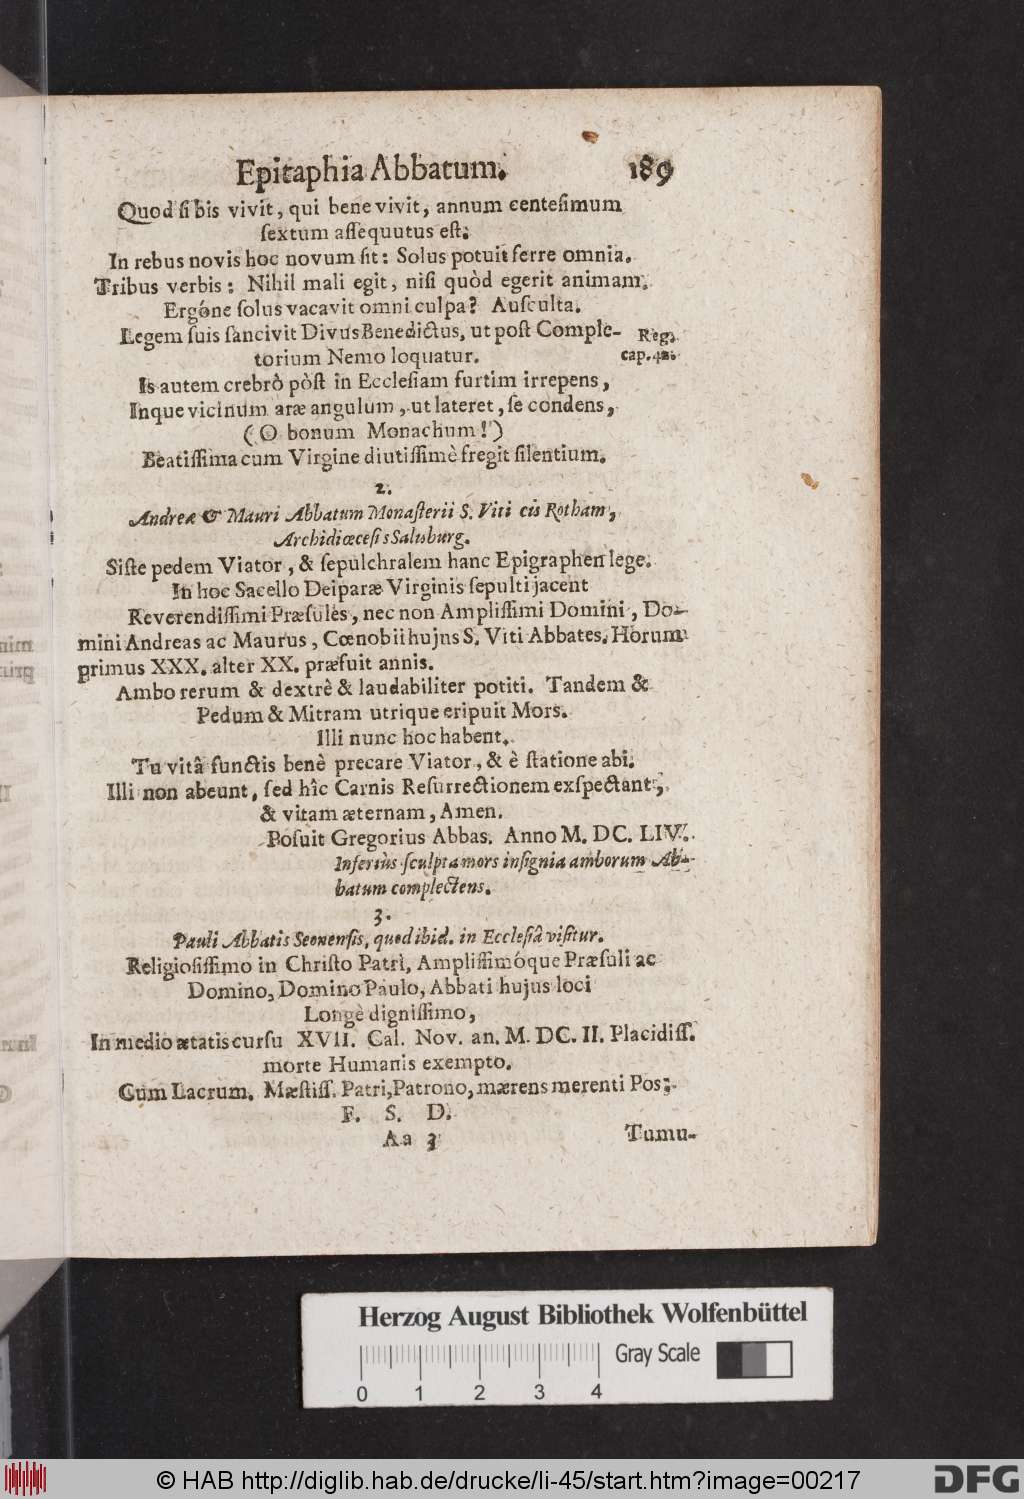 Epitaphia Abbatum. 189
Quod si bis vivit, qui bene vivit, annum centesimum
sextum assequutus est:
In rebus novis hoc novum sit: Solus potuit ferre omnia.
Tribus verbis: Nihil mali egit, nisi quòd egerit animam.
Ergóne solus vacavit omni culpa? Ausculta.
Legem suis sancivit Divus Benedictus, ut post Comple-
torium Nemo loquatur.
Reg.
cap. 42.
Is autem crebrò pòst in Ecclesiam furtim irrepens,
Inque vicinum aræ angulum, ut lateret, se condens,
(O bonum Monachum!)
Beatissima cum Virgine diutissimè fregit silentium.
2.
Andreæ & Mauri Abbatum Monasterii S. Viti cis Rotham,
Archidiœcesis Salisburg.
Siste pedem Viator, & sepulchralem hanc Epigraphen lege.
In hoc Sacello Deiparæ Virginis sepulti jacent
Reverendissimi Præsules, nec non Amplissimi Domini, Do-
mini Andreas ac Maurus, Cœnobii hujus S. Viti Abbates. Horum
primus XXX. alter XX. præfuit annis.
Ambo rerum & dextrè & laudabiliter potiti. Tandem &
Pedum & Mitram utrique eripuit Mors.
Illi nunc hoc habent.
Tu vitâ functis benè precare Viator, & è statione abi.
Illi non abeunt, sed hîc Carnis Resurrectionem exspectant,
& vitam æternam, Amen.
Posuit Gregorius Abbas. Anno M. DC. LIV.
Inferiùs sculpta mors insignia amborum Ab-
batum complectens.
3.
Pauli Abbatis Seonensis, quod ibid. in Ecclesiâ visitur.
Religiosissimo in Christo Patri, Amplissimóque Præsuli ac
Domino, Domino Paulo, Abbati hujus loci
Longè dignissimo,
In medio ætatis cursu XVII. Cal. Nov. an. M. DC. II. Placidiss.
morte Humanis exempto.
Cum Lacrum. Mæstiss. Patri, Patrono, mærens merenti Pos:
F. S. D.
Aa 3 Tumu-
Herzog August Bibliothek Wolfenbüttel
Gray Scale
0 1 2 3 4
© HAB http://diglib.hab.de/drucke/li-45/start.htm?image=00217
DFG